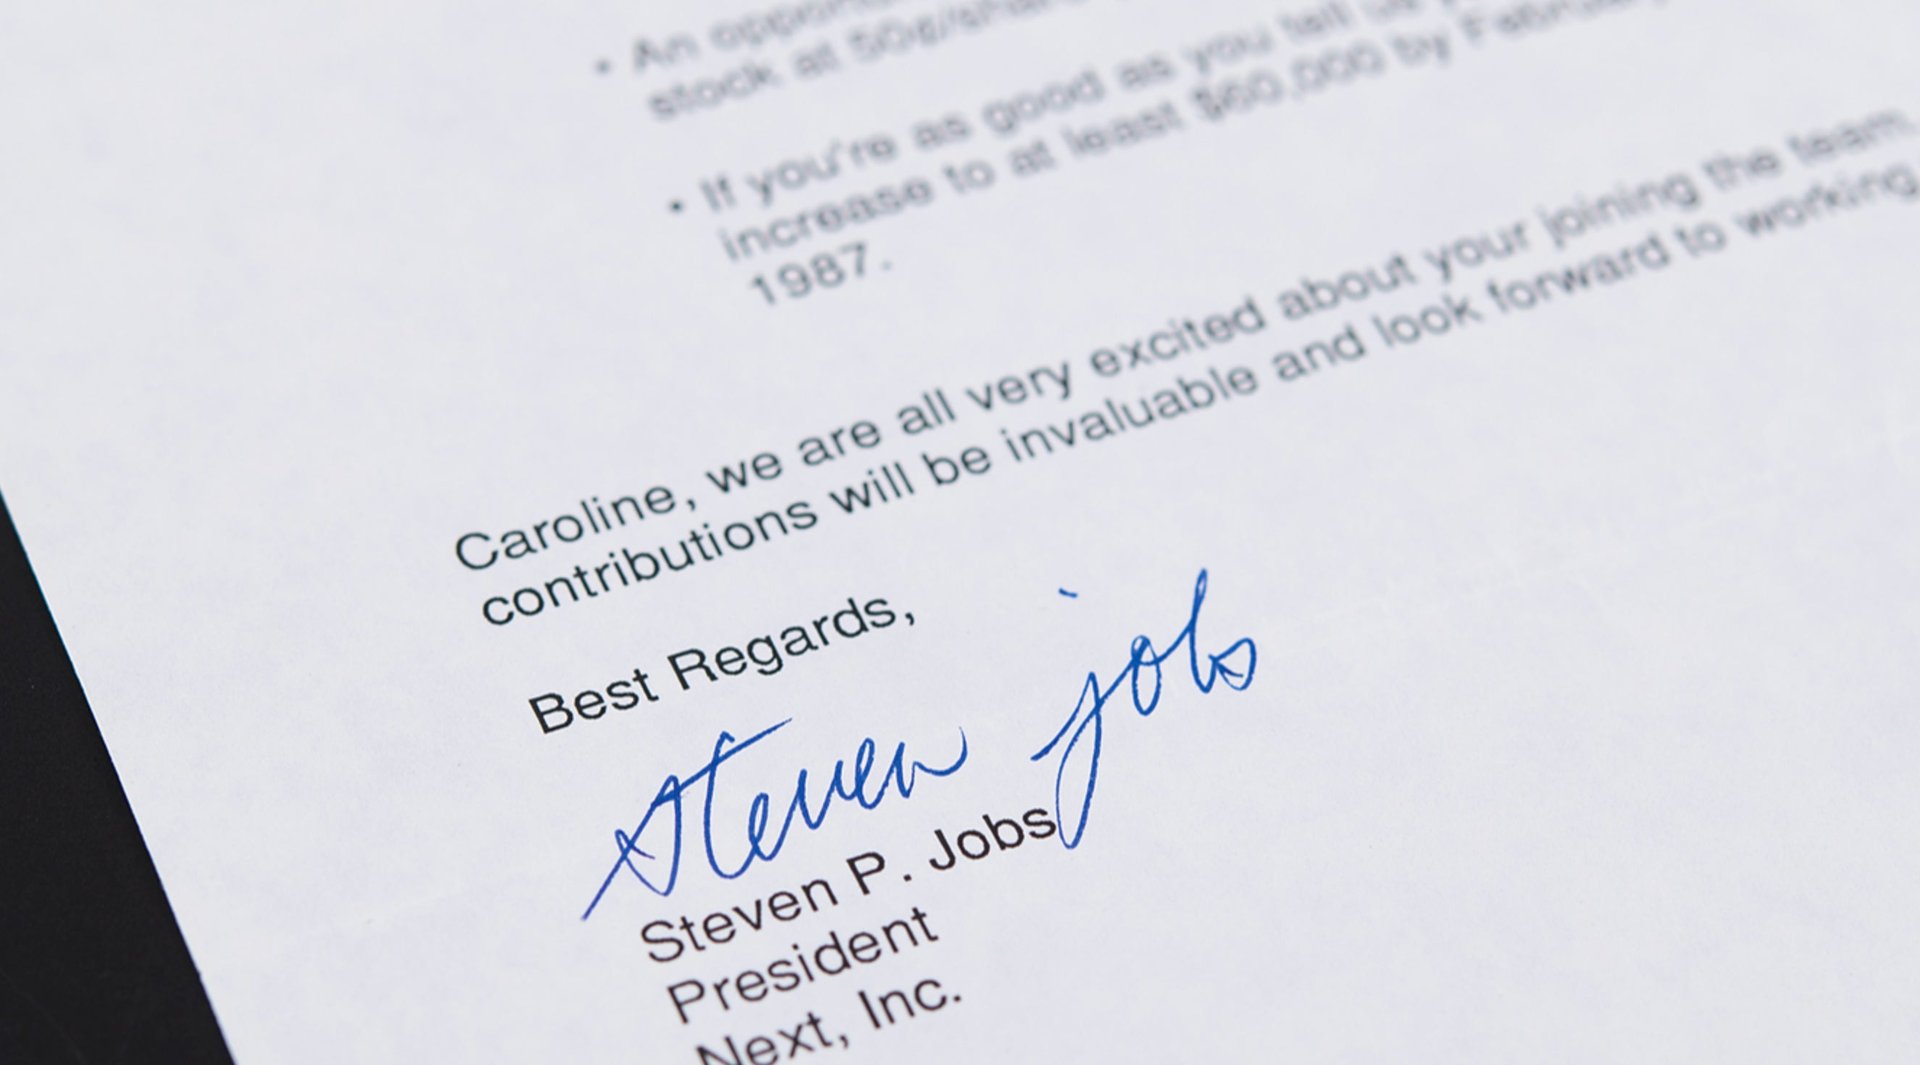 • An
stock at 50¢/share
• If you're as good as you tell us
increase to at least $60,000 by February
1987.
Caroline, we are all very excited about your joining the team.
contributions will be invaluable and look forward to working
Best Regards,
steven jobs
Steven P. Jobs
President
Next, Inc.